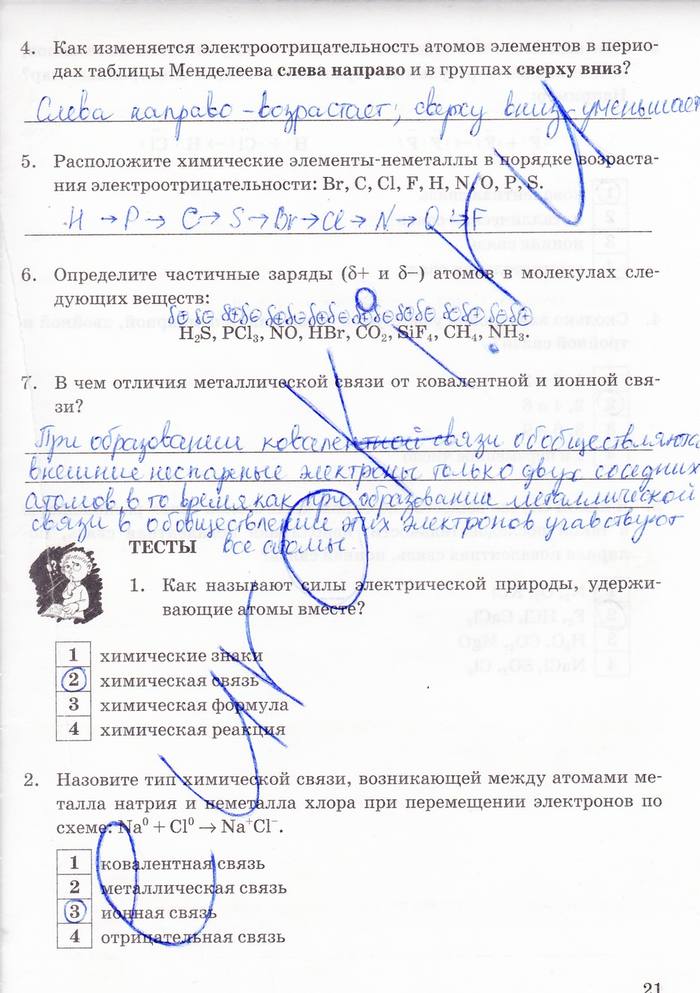 4. Как изменяется электроотрицательность атомов элементов в перио-
дах таблицы Менделеева слева направо и в группах сверху вниз?
Слева направо – возрастает; сверху вниз – уменьшает
5. Расположите химические элементы-неметаллы в порядке возраста-
ния электроотрицательности: Br, C, Cl, F, H, N, O, P, S.
H → P → C → S → Br → Cl → N → O → F
6. Определите частичные заряды (δ+ и δ–) атомов в молекулах сле-
дующих веществ:
δ+ δ- δ+ δ- δ+ δ- δ+ δ- δ+ δ- δ+ δ- δ- δ+ δ- δ+
H₂S, PCl₃, NO, HBr, CO₂, SiF₄, CH₄, NH₃.
7. В чем отличия металлической связи от ковалентной и ионной свя-
зи?
При образовании ковалентной связи обобществляются
внешние неспарные электроны только двух соседних
атомов, в то время как при образовании металлической
связи в обобществлении этих электронов учавствуют
все атомы.
ТЕСТЫ
1. Как называют силы электрической природы, удержи-
вающие атомы вместе?
1 химические знаки
2 химическая связь
3 химическая формула
4 химическая реакция
2. Назовите тип химической связи, возникающей между атомами ме-
талла натрия и неметалла хлора при перемещении электронов по
схеме: Na⁰ + Cl⁰ → Na⁺Cl⁻.
1 ковалентная связь
2 металлическая связь
3 ионная связь
4 отрицательная связь
21
euroki.ru